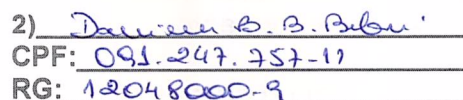 2) B. B.
CPF: 091.247.757-11
RG: 12048000-9